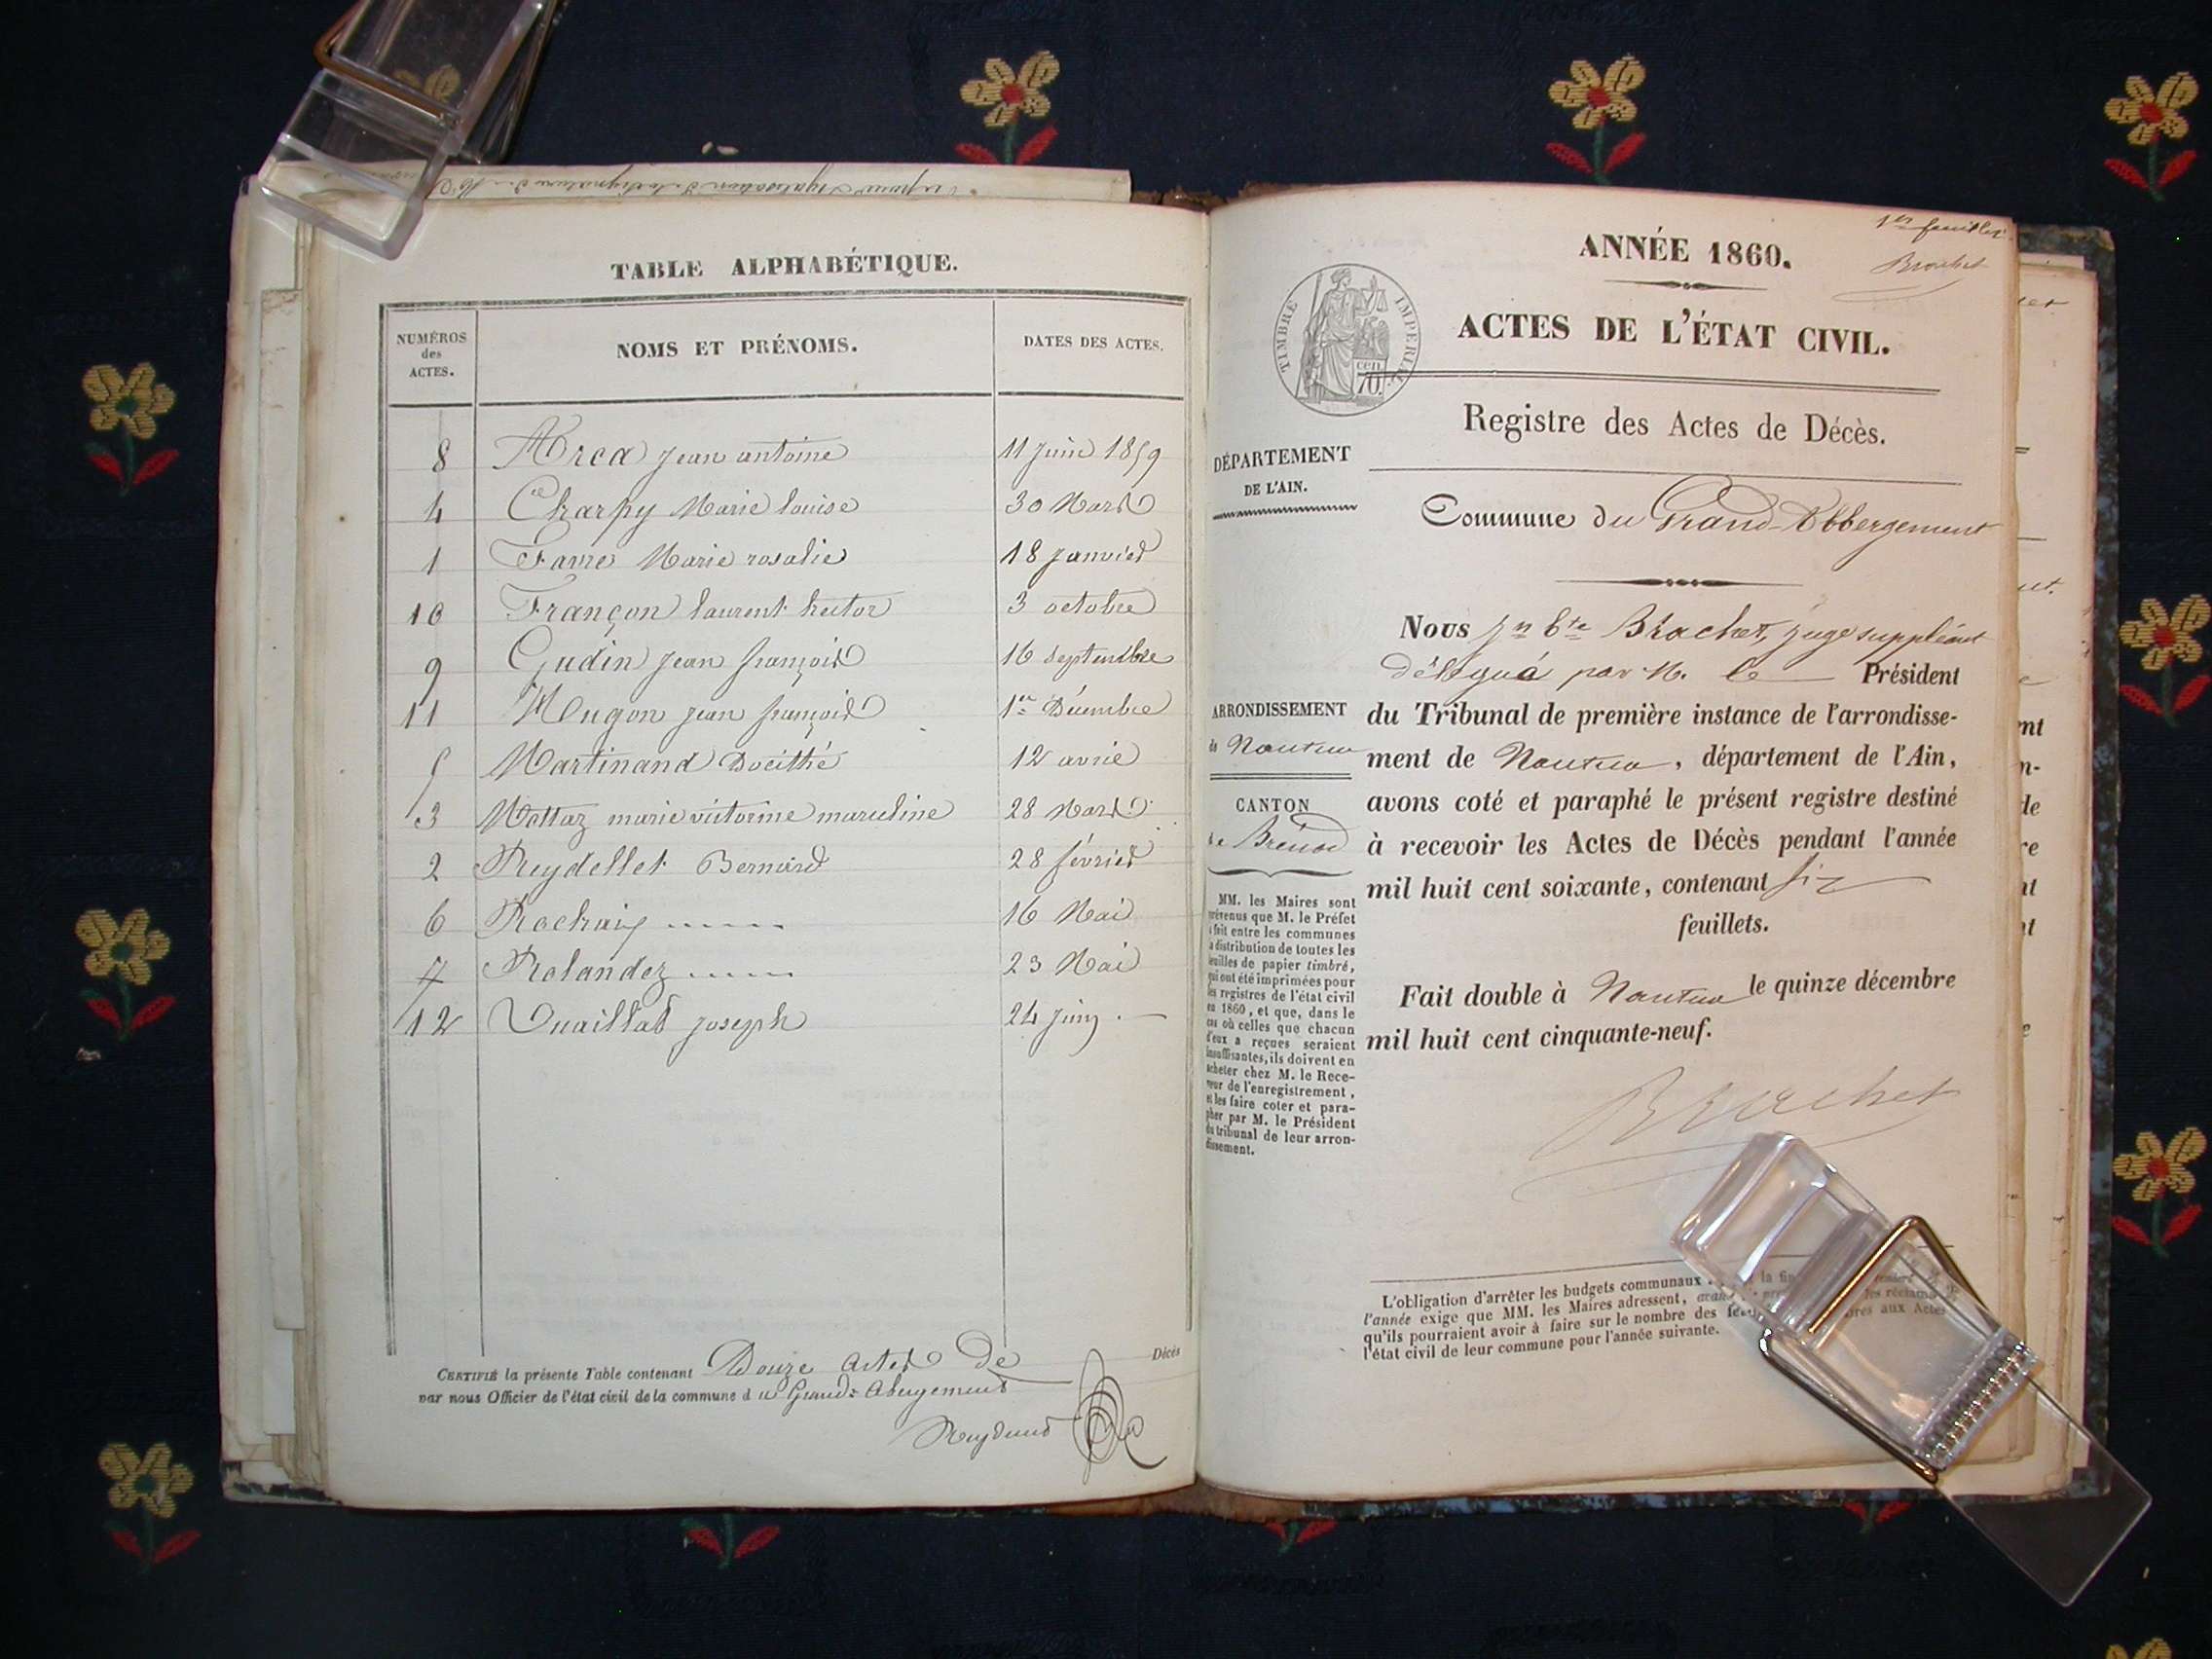 TABLE ALPHABÉTIQUE.
NUMÉROS
des
ACTES.
NOMS ET PRÉNOMS.
DATES DES ACTES.
8 Arca Jean antoine 11 Juin 1859
4 Charpy Marie louise 30 Mars
1 Favre Marie rosalie 18 Janvier
10 Françon laurent hector 3 octobre
9 Gudin Jean françois 16 septembre
11 Mugon Jean françois 1er Décembre
5 Martinand Docithé 12 avril
3 Mottaz marie victorine marceline 28 Mars
2 Reydellet Bernard 28 février
6 Rochaix 16 Mai
7 Rolandez 23 Mai
12 Vuaillat Joseph 24 Juin
CERTIFIÉ la présente Table contenant Douze actes de Décès
par nous Officier de l'état civil de la commune du Grand-Abergement
1er feuillet
Brachet
ANNÉE 1860.
ACTES DE L'ÉTAT CIVIL.
TIMBRE IMPÉRIAL
70 cen.
Registre des Actes de Décès.
DÉPARTEMENT
DE L'AIN.
Commune du Grand-Abbergement
Nous Jn Bte Brachet, juge suppléant
délégué par M. le Président
du Tribunal de première instance de l'arrondisse-
ment de Nantua, département de l'Ain,
avons coté et paraphé le présent registre destiné
à recevoir les Actes de Décès pendant l'année
mil huit cent soixante, contenant six
feuillets.
Fait double à Nantua le quinze décembre
mil huit cent cinquante-neuf.
Brachet
ARRONDISSEMENT
de Nantua
CANTON
de Brénod
MM. les Maires sont
prévenus que M. le Préfet
a fait entre les communes
la distribution de toutes les
feuilles de papier timbré,
qui ont été imprimées pour
les registres de l'état civil
en 1860, et que, dans le
cas où celles que chacun
d'eux a reçues seraient
insuffisantes, ils doivent en
acheter chez M. le Rece-
veur de l'enregistrement,
et les faire coter et para-
pher par M. le Président
du tribunal de leur arron-
dissement.
L'obligation d'arrêter les budgets communaux la fin
l'année exige que MM. les Maires adressent, avant les réclam
qu'ils pourraient avoir à faire sur le nombre des aux Actes
l'état civil de leur commune pour l'année suivante.